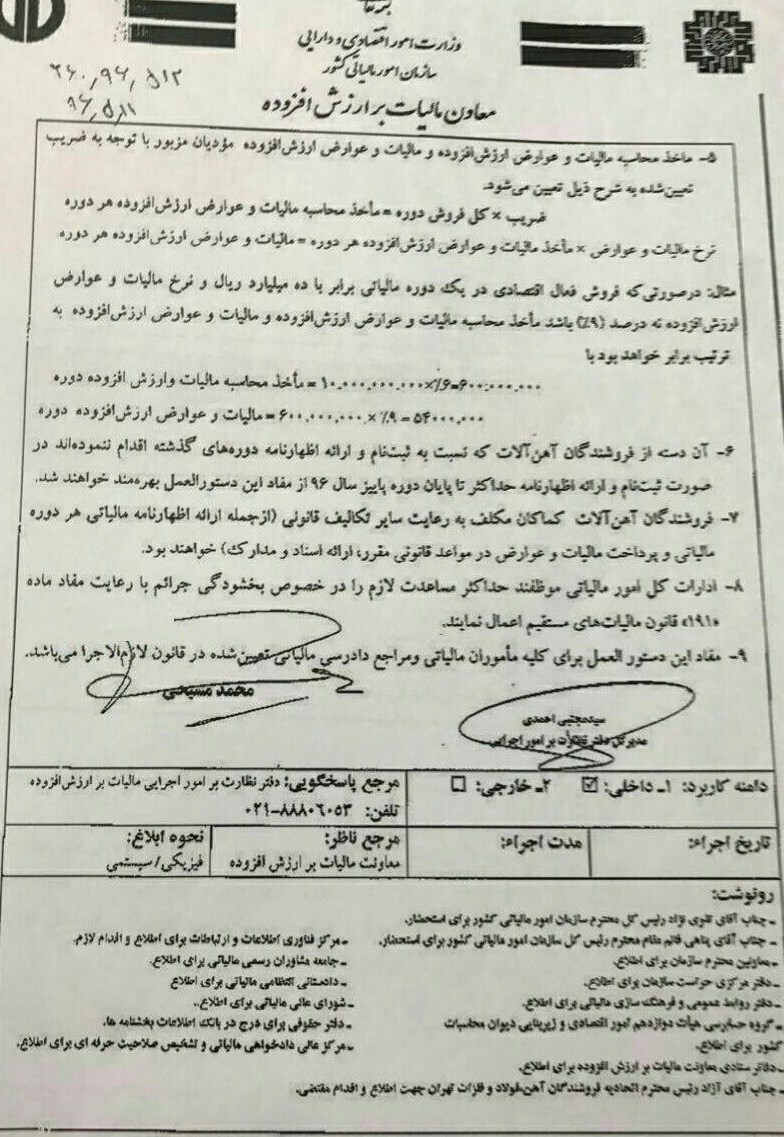 بسمه تعالی
وزارت امور اقتصادی و دارایی
سازمان امور مالیاتی کشور
معاون مالیات بر ارزش افزوده
۵- مأخذ محاسبه مالیات و عوارض ارزش‌افزوده و مالیات و عوارض ارزش‌افزوده مؤدیان مزبور با توجه به ضریب
تعیین‌شده به شرح ذیل تعیین می‌شود.
ضریب × کل فروش دوره = مأخذ محاسبه مالیات و عوارض ارزش‌افزوده هر دوره
نرخ مالیات و عوارض × مأخذ مالیات و عوارض ارزش‌افزوده هر دوره = مالیات و عوارض ارزش‌افزوده هر دوره
مثال: درصورتی‌که فروش فعال اقتصادی در یک دوره مالیاتی برابر با ده میلیارد ریال و نرخ مالیات و عوارض
ارزش‌افزوده نه درصد (۹٪) باشد مأخذ محاسبه مالیات و عوارض ارزش‌افزوده و مالیات و عوارض ارزش‌افزوده به
ترتیب برابر خواهد بود با
۱۰.۰۰۰.۰۰۰.۰۰۰×٪۶=۶۰۰.۰۰۰.۰۰۰ = مأخذ محاسبه مالیات وارزش افزوده دوره
۶۰۰.۰۰۰.۰۰۰ × ٪۹ = ۵۴۰۰۰.۰۰۰ = مالیات و عوارض ارزش‌افزوده دوره
۶- آن دسته از فروشندگان آهن‌آلات که نسبت به ثبت‌نام و ارائه اظهارنامه دوره‌های گذشته اقدام ننموده‌اند در
صورت ثبت‌نام و ارائه اظهارنامه حداکثر تا پایان دوره پاییز سال ۹۶ از مفاد این دستورالعمل بهره‌مند خواهند شد.
۷- فروشندگان آهن‌آلات کماکان مکلف به رعایت سایر تکالیف قانونی (ازجمله ارائه اظهارنامه مالیاتی هر دوره
مالیاتی و پرداخت مالیات و عوارض در مواعد قانونی مقرر، ارائه اسناد و مدارک) خواهند بود.
۸- ادارات کل امور مالیاتی موظفند حداکثر مساعدت لازم را در خصوص بخشودگی جرائم با رعایت مفاد ماده
«۱۹۱» قانون مالیات‌های مستقیم اعمال نمایند.
۹- مفاد این دستور العمل برای کلیه مأموران مالیاتی ومراجع دادرسی مالیاتی تعیین‌شده در قانون لازم‌الاجرا می‌باشد.
محمد مسیحی
سیدمجتبی احمدی
مدیرکل دفتر نظارت بر امور اجرایی
دامنه کاربرد: ۱ـ داخلی: ☑ ۲ـ خارجی: ☐
مرجع پاسخگویی: دفتر نظارت بر امور اجرایی مالیات بر ارزش‌افزوده
تلفن: ۸۸۸۰۶۰۵۳-۰۲۱
تاریخ اجراء:
مدت اجراء:
مرجع ناظر:
معاونت مالیات بر ارزش افزوده
نحوه ابلاغ:
فیزیکی/سیستمی
رونوشت:
ـ جناب آقای تقوی نژاد رئیس کل محترم سازمان امور مالیاتی کشور برای استحضار.
ـ جناب آقای پناهی قائم مقام محترم رئیس کل سازمان امور مالیاتی کشور برای استحضار.
ـ معاونین محترم سازمان برای اطلاع.
ـ دفتر مرکزی حراست سازمان برای اطلاع.
ـ دفتر روابط عمومی و فرهنگ سازی مالیاتی برای اطلاع.
ـ گروه حسابرسی هیأت دوازدهم امور اقتصادی و زیربنایی دیوان محاسبات
کشور برای اطلاع.
ـ دفاتر ستادی معاونت مالیات بر ارزش افزوده برای اطلاع.
ـ جناب آقای آزاد رئیس محترم اتحادیه فروشندگان آهن،فولاد و فلزات تهران جهت اطلاع و اقدام مقتضی.
ـ مرکز فناوری اطلاعات و ارتباطات برای اطلاع و اقدام لازم.
ـ جامعه مشاوران رسمی مالیاتی برای اطلاع.
ـ دادستانی انتظامی مالیاتی برای اطلاع
ـ شورای عالی مالیاتی برای اطلاع..
ـ دفتر حقوقی برای درج در بانک اطلاعات بخشنامه ها.
ـ مرکز عالی دادخواهی مالیاتی و تشخیص صلاحیت حرفه ای برای اطلاع.